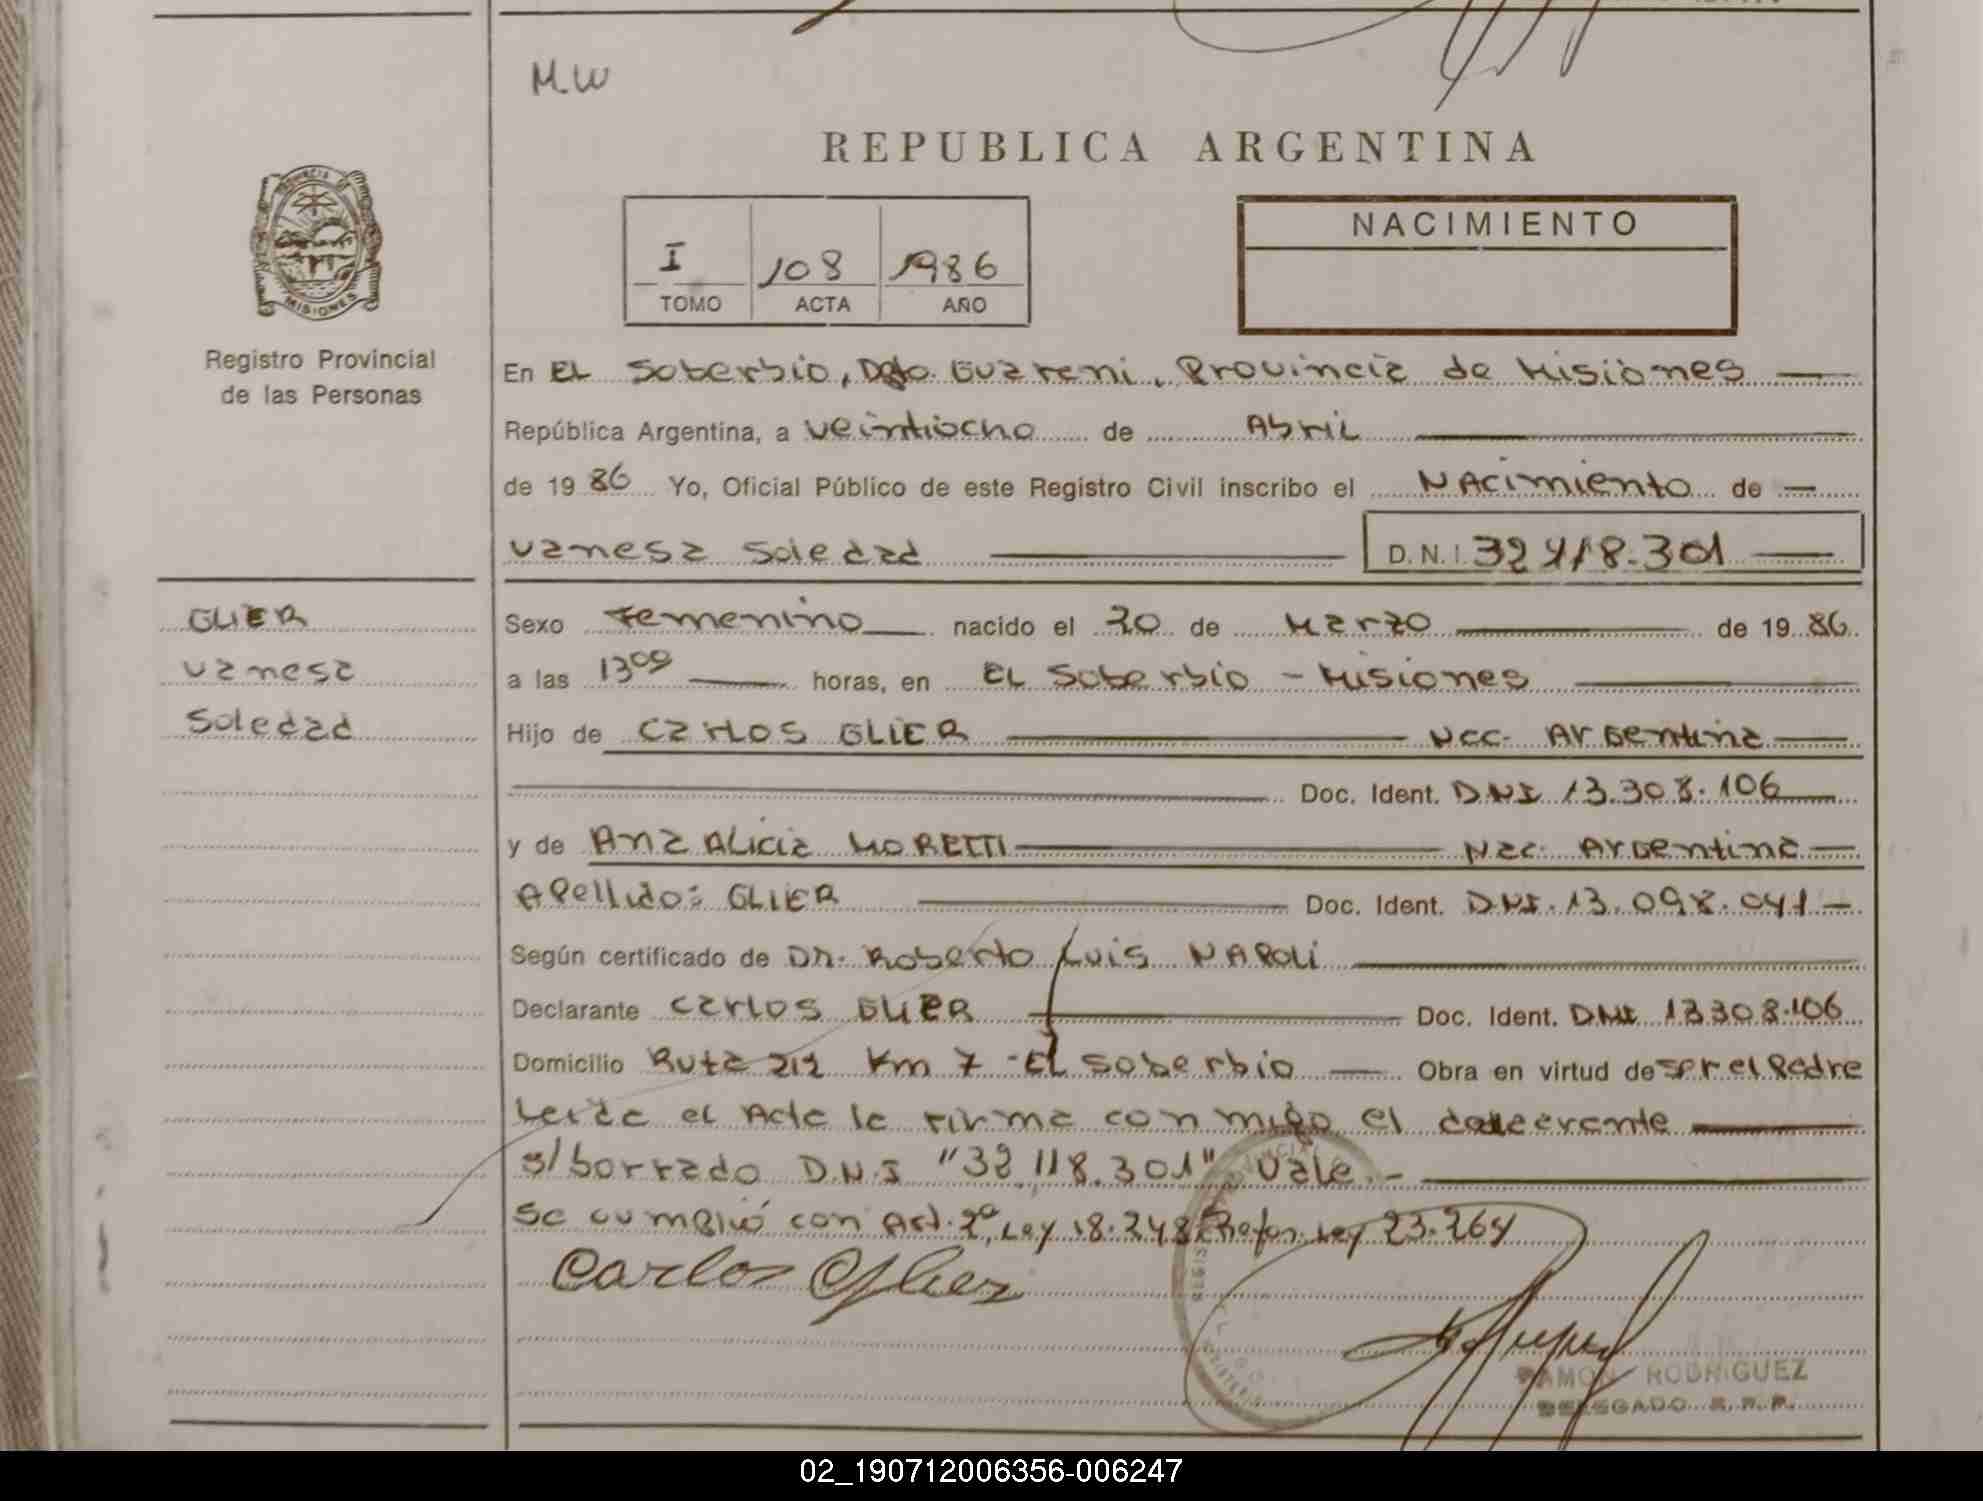 M.W
REPUBLICA ARGENTINA
PROVINCIA DE
MISIONES
Registro Provincial
de las Personas
I 108 1986
TOMO ACTA AÑO
NACIMIENTO
En EL Soberbio, Dpto. Guarani, Provincia de Misiones
República Argentina, a veintiocho de Abril
de 1986 Yo, Oficial Público de este Registro Civil inscribo el Nacimiento de
Vanesa Soledad D.N.I. 32118.301
GLIER
Vanesa
Soledad
Sexo Femenino nacido el 20 de Marzo de 1986
a las 13 00 horas, en EL Soberbio - Misiones
Hijo de Carlos GLIER Nac. Argentina
Doc. Ident. DNI 13.308.106
y de Ana Alicia MORETTI Nac. Argentina
Apellido: GLIER Doc. Ident. DNI. 13.098.041
Según certificado de Dr. Roberto Luis NAPOLI
Declarante Carlos GLIER Doc. Ident. DNI 13308.106
Domicilio Ruta 212 Km 7 - El Soberbio Obra en virtud de ser el Padre
Leida el Acta la firma conmigo el
s/borrado D.N.I "32.118.301" Vale.-
Se cumplió con Art. 2º, Ley 18.248, Refor. Ley 23.264
Carlos Glier
RAMON RODRIGUEZ
DELEGADO R.P.P.
02_190712006356-006247